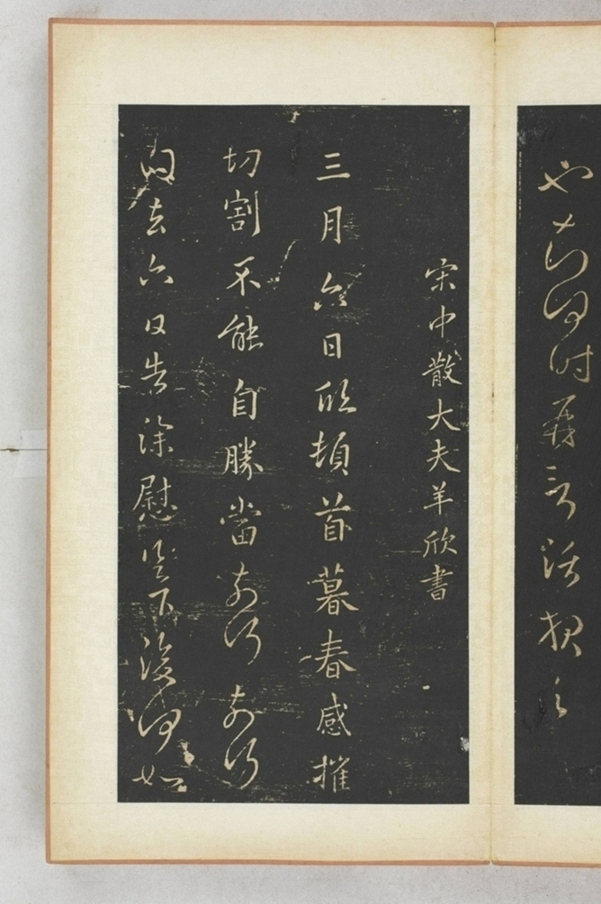 也時
宋中散大夫羊欣書
三月六日欣頓首暮春感摧
切割不能自勝當奈何奈何
去六日告深慰足下復何如